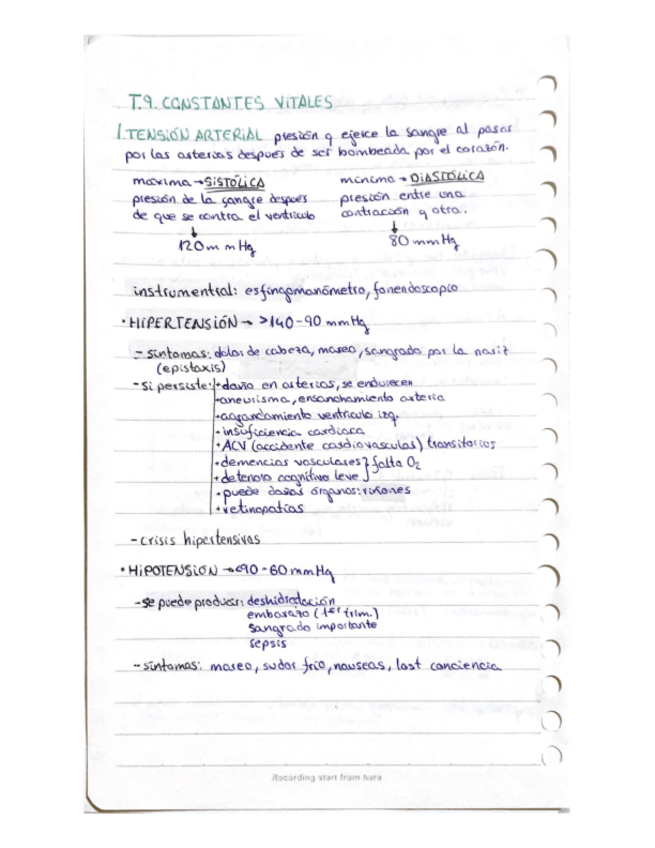 T.9. CONSTANTES VITALES
1.TENSIÓN ARTERIAL presión q ejerce la sangre al pasar
por las arterias después de ser bombeada por el corazón.
maxima → SISTÓLICA
presión de la sangre después
de que se contra el ventriculo
↓
120 m mHg
minima → DIASTÓLICA
presión entre una
contracción y otra.
↓
80 mmHg
instrumentral: esfingomanómetro, fonendoscopio
• HIPERTENSIÓN → >140-90 mmHg
- síntomas: dolor de cabeza, mareo, sangrado por la nariz
(epistaxis)
- Si persiste: • daño en arterias, se endurecen
• aneurisma, ensanchamiento arteria
• agrandamiento ventriculo izq.
• insuficiencia cardiaca
• ACV (accidente cardiovascular) transitorios
• demencias vasculares} falta O2
• deterioro cognitivo leve
• puede dañar órganos: riñones
• retinopatías
- crisis hipertensivas
• HIPOTENSIÓN → <90-60 mmHg
- se puede producir: deshidratación
embarazo (1er trim.)
sangrado importante
sepsis
- síntomas: mareo, sudor frío, nauseas, lost conciencia
Recording start from hara